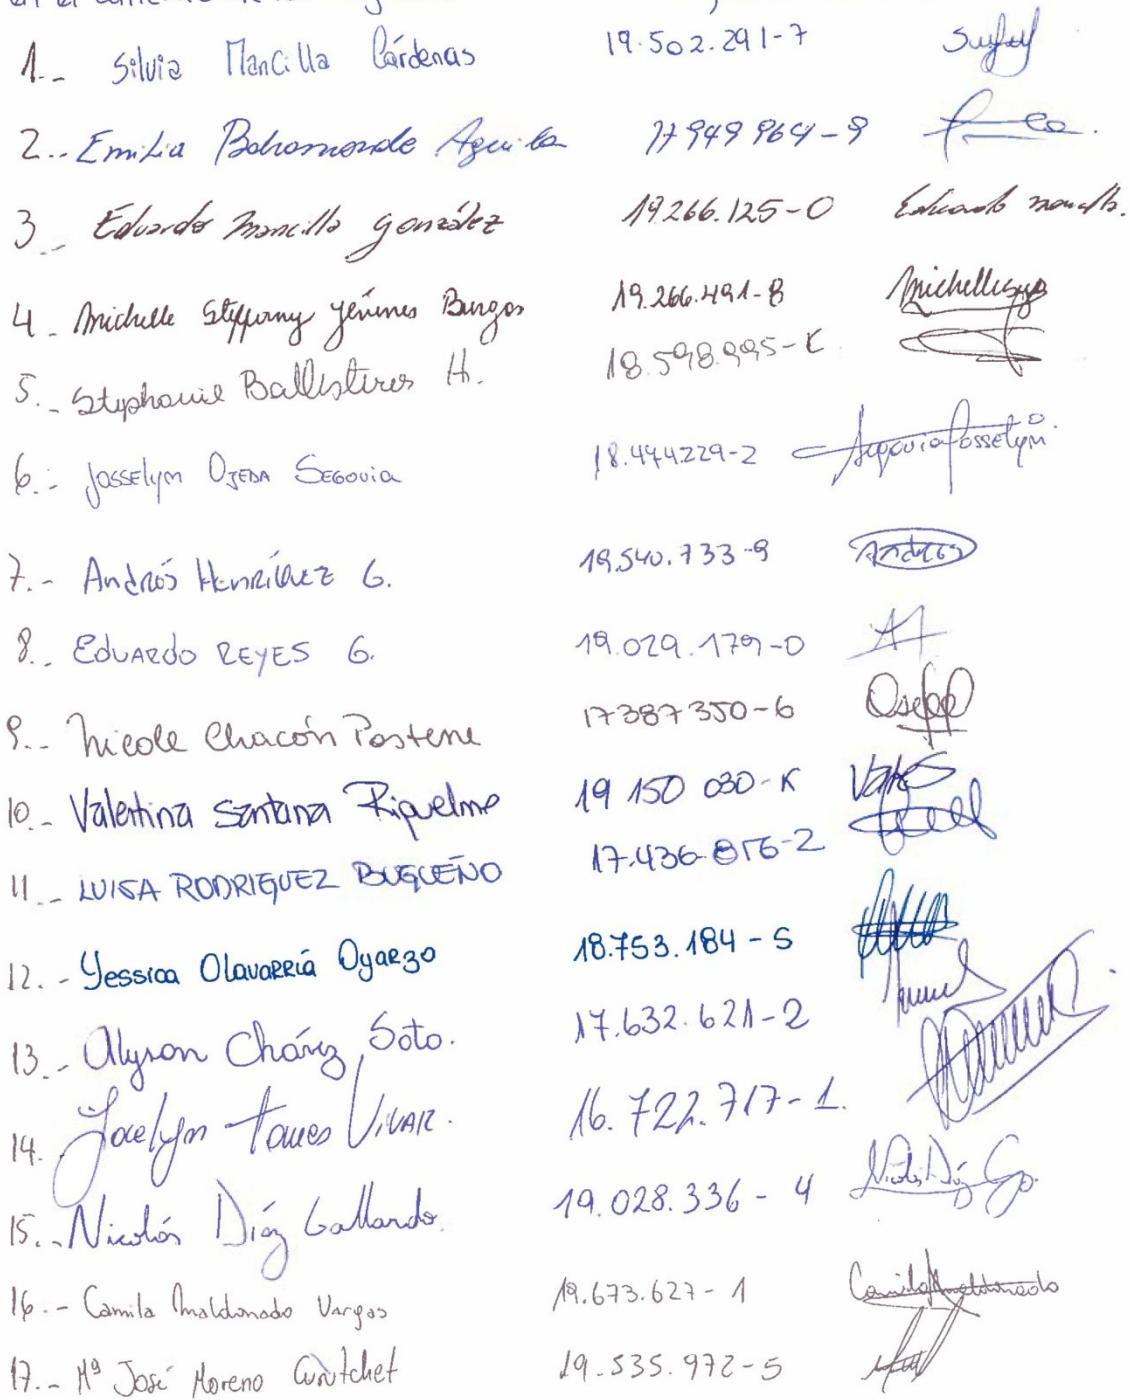 en el
1.- Silvia Mancilla Cárdenas 19.502.291-7
2.- Emilia Bahamonde Aguila 17949964-9
3.- Eduardo Mancilla González 19.266.125-0 Eduardo Mancilla.
4.- Michelle Steffany Jiménes Burgos 19.266.491-8
5.- Stephanie Ballesteros H. 18.598.995-K
6.- Josselyn OJEDA SEGOVIA 18.474229-2 Segovia Josselyn O.
7.- Andrés Henríquez G. 19.540.733-9 Andrés
8.- EDUARDO REYES G. 19.029.179-0
9.- Nicole Chacón Postene 17387350-6
10.- Valentina Santana Riquelme 19 150 030-K
11.- LUISA RODRIGUEZ BUGUEÑO 17.436.816-2
12.- Yessica Olavarría Oyarzo 18.753.184-5
13.- Alyson Chávez Soto. 17.632.621-2
14. Jocelyn Torres VIVAR. 16.722.717-1.
15.- Nicolás Díaz Gallardo. 19.028.336-4 Nicolás Díaz
16.- Camila Maldonado Vargas 19.673.627-1 Camila Maldonado
17.- Mª José Moreno Curutchet 19.535.972-5